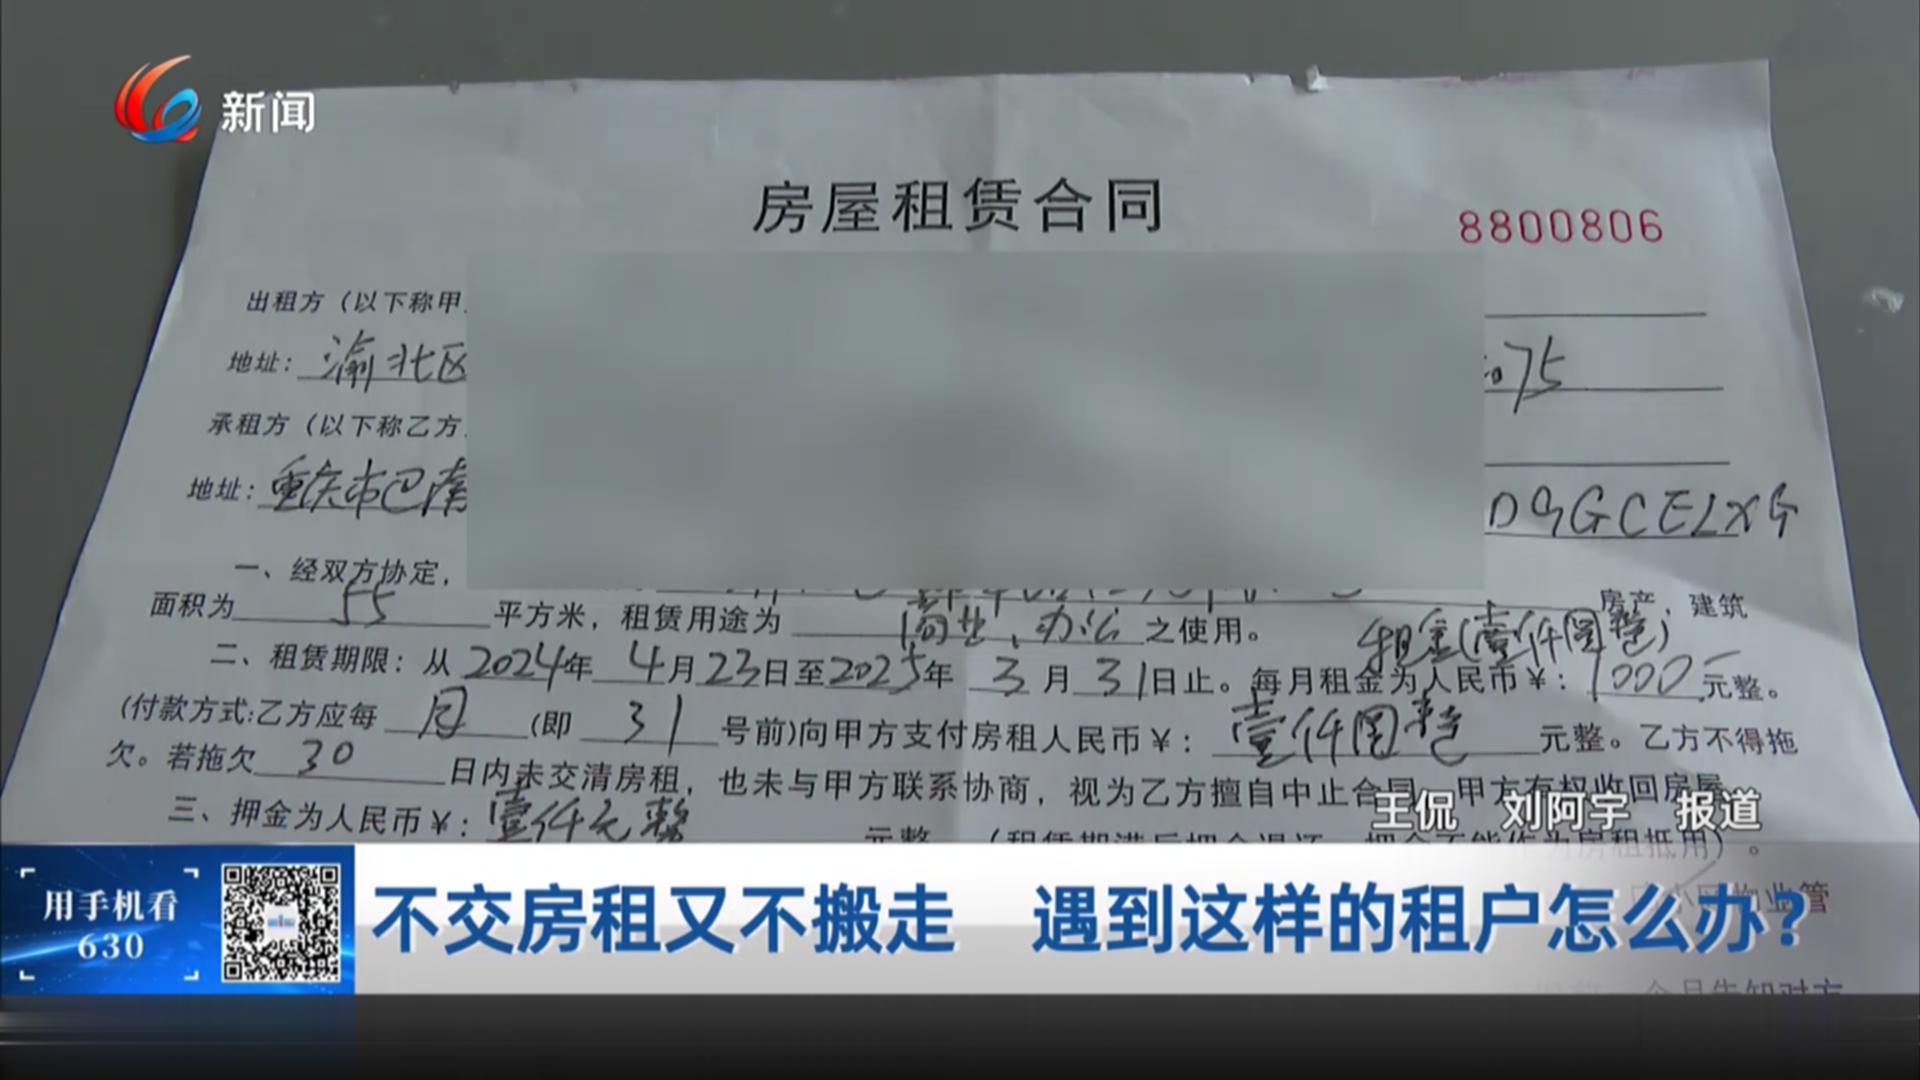 新闻
房屋租赁合同
8800806
出租方（以下称甲
地址：渝北区
075
承租方（以下称乙方
地址：重庆市巴南
D9GCELXG
一、经双方协定，
房产，建筑
面积为 55 平方米，租赁用途为 商业、办公 之使用。
租金(壹仟圆整)
二、租赁期限：从2024年 4月23日至2025年 3月31日止。每月租金为人民币￥：1000元整。
(付款方式:乙方应每 月 (即 31 号前)向甲方支付房租人民币￥：壹仟圆整 元整。乙方不得拖
欠。若拖欠 30 日内未交清房租，也未与甲方联系协商，视为乙方擅自中止合同，甲方有权收回房屋
三、押金为人民币￥：壹仟元整 元整。（租赁期满后押金退还，押金不能作为房租抵用）。
王侃 刘阿宇 报道
用手机看
630
不交房租又不搬走 遇到这样的租户怎么办？
物业管
个月告知对方